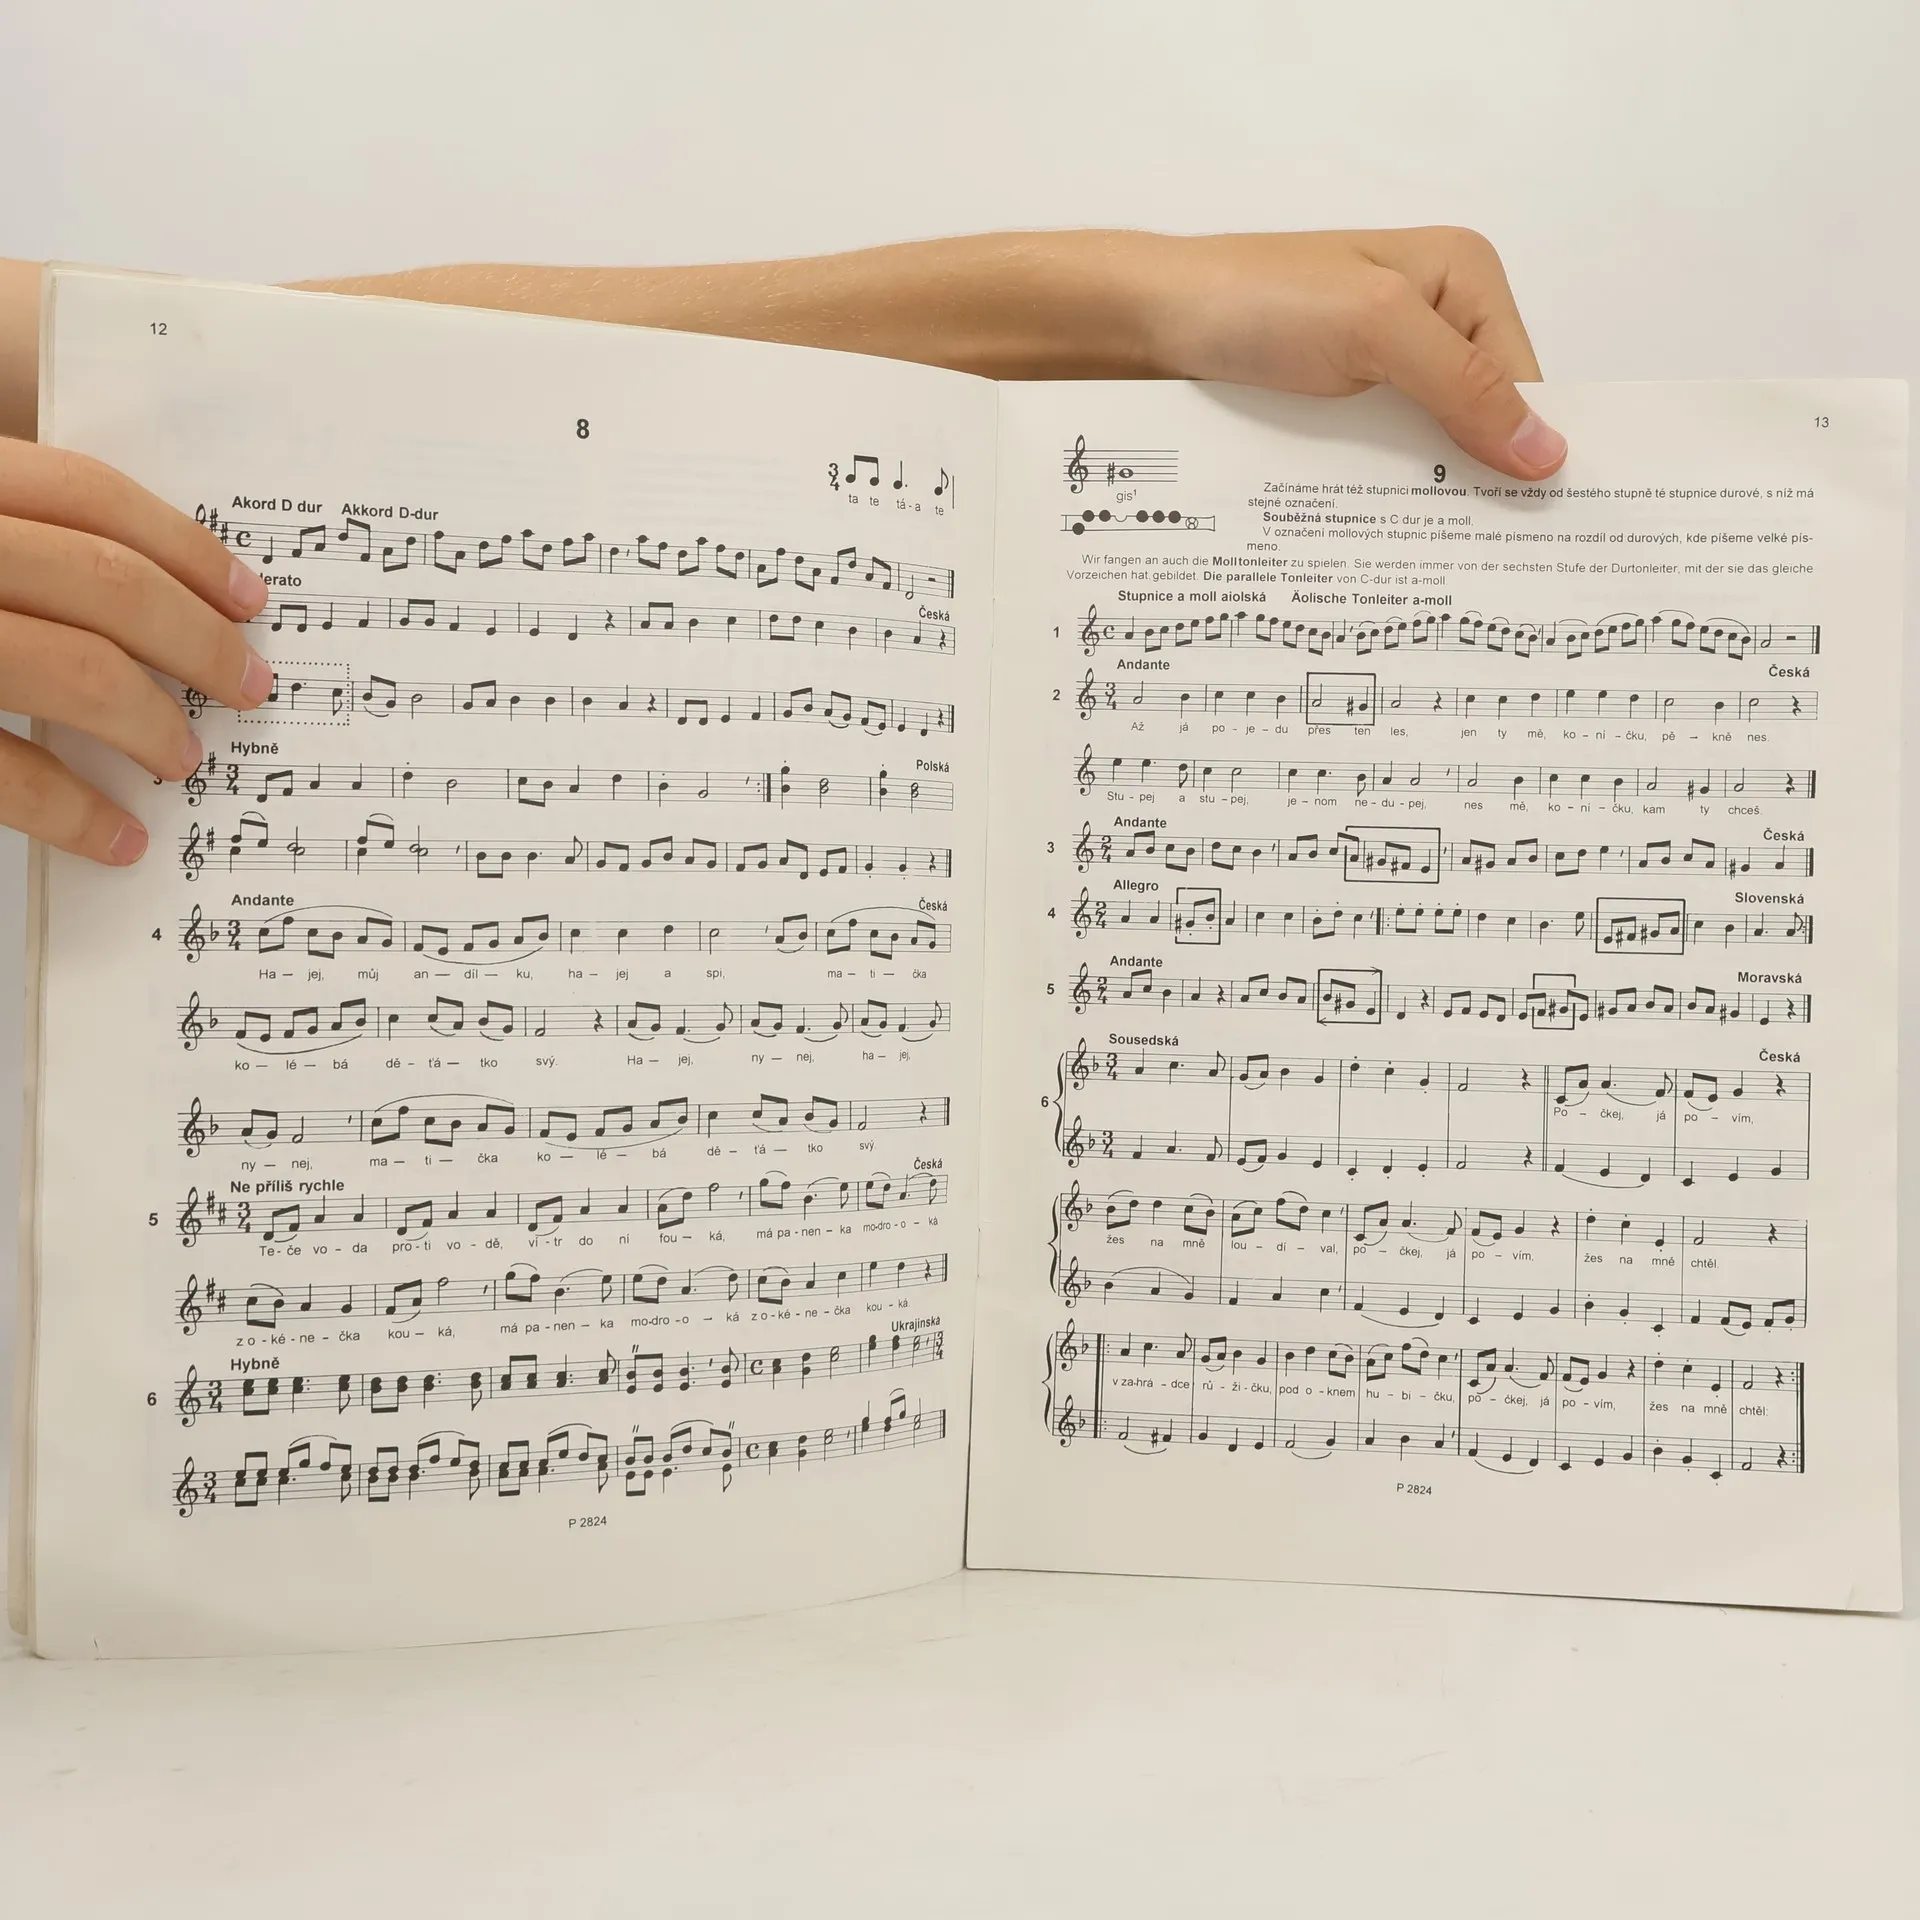 12
8
3 4
ta te tá-a te
Akord D dur Akkord D-dur
C
erato
Česká
Hybně
Polská
3 4
Andante
Česká
4
3 4
Ha — jej, můj an — díl — ku, ha — jej a spi, ma — ti — čka
ko — lé — bá dě — ťá — tko svý. Ha — jej, ny — nej, ha — jej,
ny — nej, ma — ti — čka ko — lé — bá dě — ťá — tko svý.
Ne příliš rychle
Česká
5
3 4
Te - če vo - da pro - ti vo - dě, ví - tr do ní fou - ká, má pa - nen - ka mo-dro - o - ká
z o - ké - ne - čka kou - ká, má pa - nen - ka mo-dro - o - ká z o - ké - ne - čka kou - ká.
Hybně
Ukrajinská
6
3 4 C 3 4
3 4 C
P 2824
13
9
gis¹
Začínáme hrát též stupnici mollovou. Tvoří se vždy od šestého stupně té stupnice durové, s níž má
stejné označení.
Souběžná stupnice s C dur je a moll.
V označení mollových stupnic píšeme malé písmeno na rozdíl od durových, kde píšeme velké pís-
meno.
Wir fangen an auch die Molltonleiter zu spielen. Sie werden immer von der sechsten Stufe der Durtonleiter, mit der sie das gleiche
Vorzeichen hat gebildet. Die parallele Tonleiter von C-dur ist a-moll
Stupnice a moll aiolská Äolische Tonleiter a-moll
1
C
Andante
Česká
2
3 4
Až já po - je - du přes ten les, jen ty mě, ko - ní - čku, pě - kně nes.
Stu - pej a stu - pej, je - nom ne - du - pej, nes mě, ko - ní - čku, kam ty chceš.
Andante
Česká
3
2 4
Allegro
Slovenská
4
2 4
Andante
Moravská
5
2 4
Sousedská
Česká
6
3 4
Po - čkej, já po - vím,
3 4
žes na mně lou - dí - val, po - čkej, já po - vím, žes na mně chtěl.
v za-hrá - dce rů - ži - čku, pod o - knem hu - bi - čku, po - čkej, já po - vím, žes na mně chtěl.
P 2824